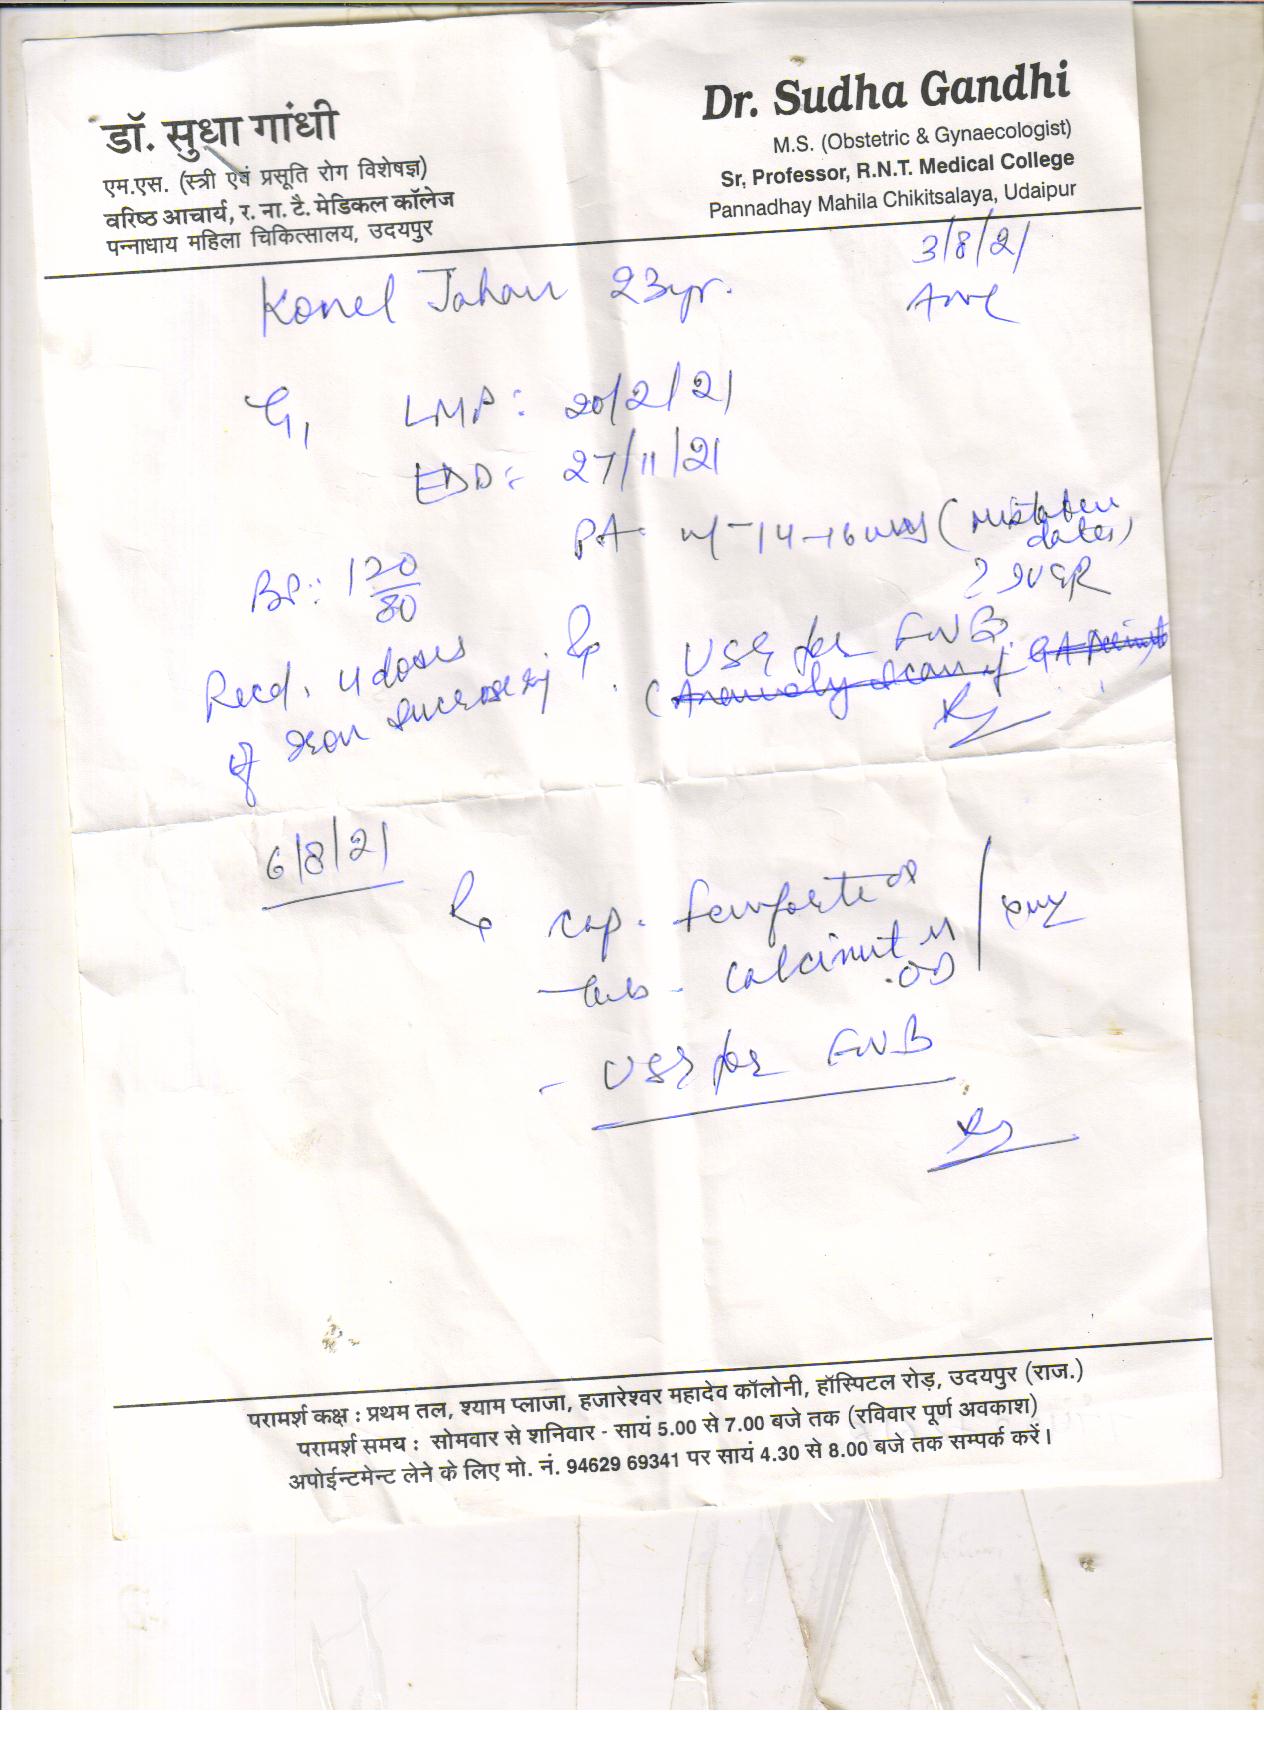 डॉ. सुधा गांधी
एम.एस. (स्त्री एवं प्रसूति रोग विशेषज्ञ)
वरिष्ठ आचार्य, र. ना. टै. मेडिकल कॉलेज
पन्नाधाय महिला चिकित्सालय, उदयपुर
Dr. Sudha Gandhi
M.S. (Obstetric & Gynaecologist)
Sr, Professor, R.N.T. Medical College
Pannadhay Mahila Chikitsalaya, Udaipur
3/8/21
Konel Jahan 23yr.
G1 LMP: 20/2/21
EDD: 27/11/21
PA- 14-16 wks (mistaken
dates)
? IUGR
BP: 120/80
Recd. 4 doses
of iron sucrose inj
Rp USG for FWB
6/8/21
Rp cap.
tab. calcimut
OD
- USG for FWB
परामर्श कक्ष : प्रथम तल, श्याम प्लाजा, हजारेश्वर महादेव कॉलोनी, हॉस्पिटल रोड़, उदयपुर (राज.)
परामर्श समय : सोमवार से शनिवार - सायं 5.00 से 7.00 बजे तक (रविवार पूर्ण अवकाश)
अपोईन्टमेन्ट लेने के लिए मो. नं. 94629 69341 पर सायं 4.30 से 8.00 बजे तक सम्पर्क करें।